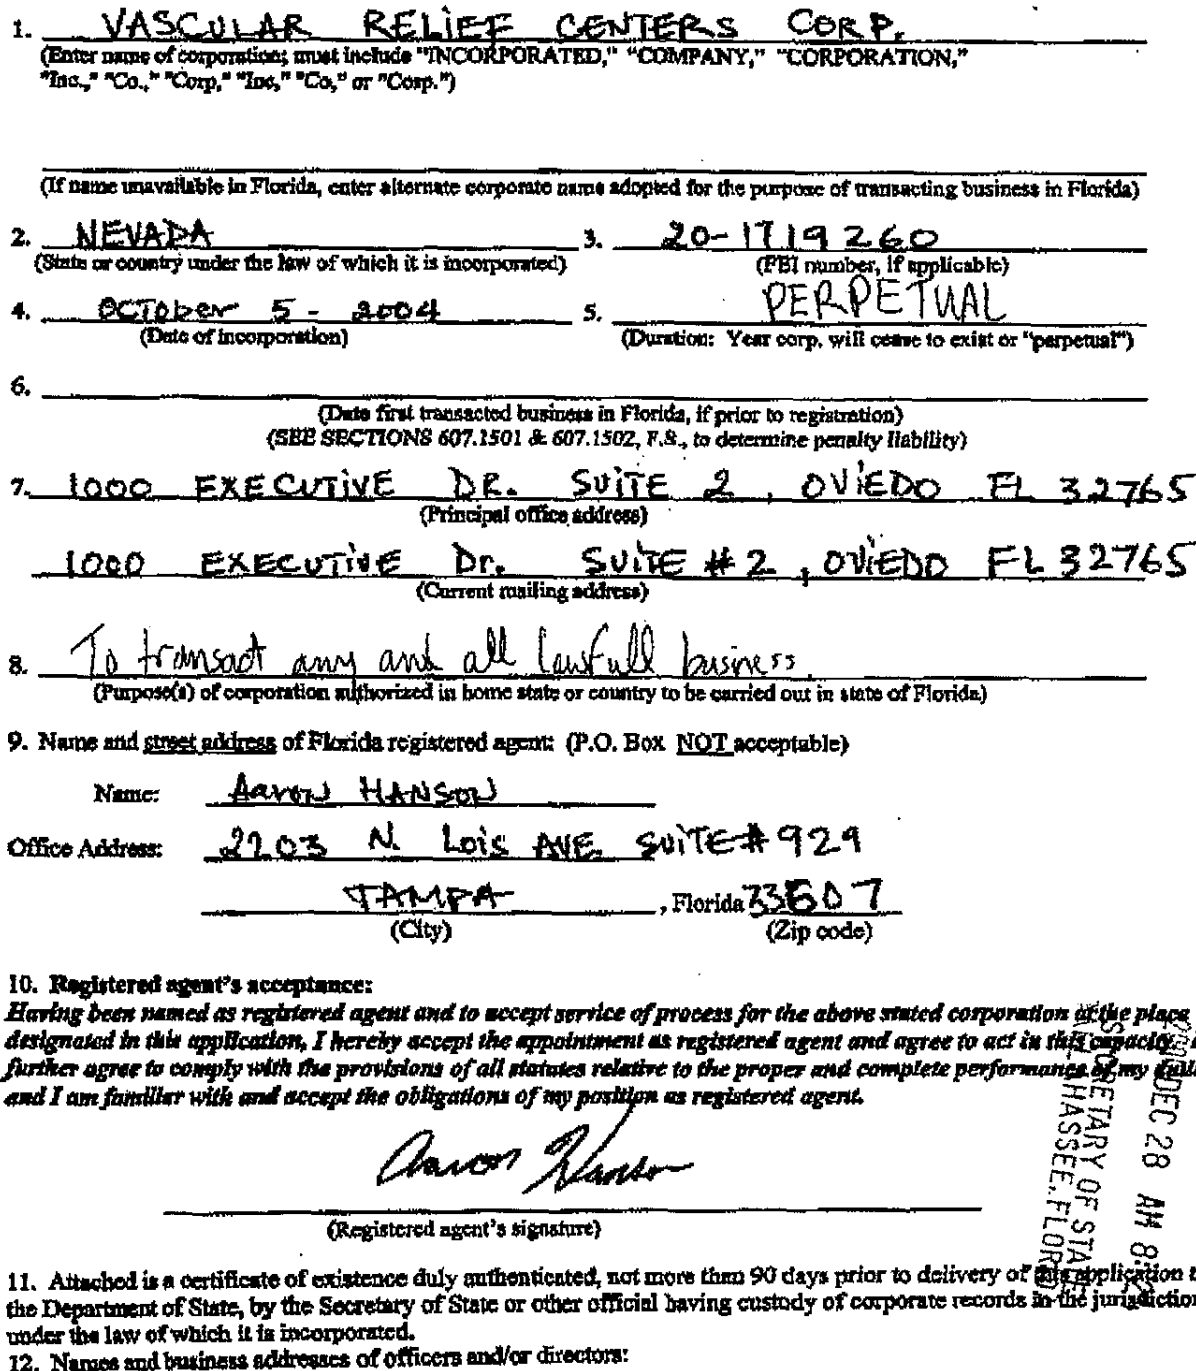 1. VASCULAR RELIEF CENTERS CORP.
(Enter name of corporation; must include "INCORPORATED," "COMPANY," "CORPORATION,"
"Inc.," "Co.," "Corp," "Inc," "Co," or "Corp.")
(If name unavailable in Florida, enter alternate corporate name adopted for the purpose of transacting business in Florida)
2. NEVADA 3. 20-1719260
(State or country under the law of which it is incorporated) (FEI number, if applicable)
4. OCTOber 5 - 2004 5. PERPETUAL
(Date of incorporation) (Duration: Year corp. will cease to exist or "perpetual")
6.
(Date first transacted business in Florida, if prior to registration)
(SEE SECTIONS 607.1501 & 607.1502, F.S., to determine penalty liability)
7. 1000 EXECUTIVE DR. SUITE 2, OVIEDO FL 32765
(Principal office address)
1000 EXECUTIVE Dr. SUITE # 2, OVIEDO FL 32765
(Current mailing address)
8. To transact any and all lawfull business.
(Purpose(s) of corporation authorized in home state or country to be carried out in state of Florida)
9. Name and street address of Florida registered agent: (P.O. Box NOT acceptable)
Name: Aaron HANSON
Office Address: 2203 N. Lois AVE. SUITE # 929
TAMPA, Florida 33607
(City) (Zip code)
10. Registered agent's acceptance:
Having been named as registered agent and to accept service of process for the above stated corporation at the place
designated in this application, I hereby accept the appointment as registered agent and agree to act in this capacity.
further agree to comply with the provisions of all statutes relative to the proper and complete performance of my
and I am familiar with and accept the obligations of my position as registered agent.
Aaron Hanson
(Registered agent's signature)
DEC 28 AM 8:
SECRETARY OF STA
HASSEE, FLOR
11. Attached is a certificate of existence duly authenticated, not more than 90 days prior to delivery of this application t
the Department of State, by the Secretary of State or other official having custody of corporate records in the jurisdiction
under the law of which it is incorporated.
12. Names and business addresses of officers and/or directors: